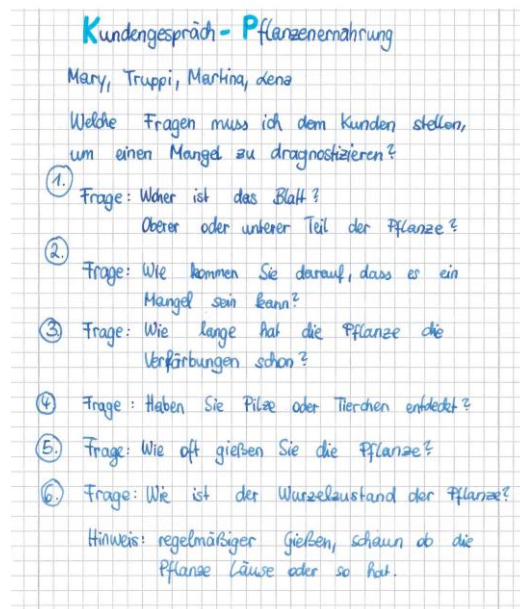 Kundengespräch - Pflanzenernährung
Mary, Truppi, Martina, Lena
Welche Fragen muss ich dem Kunden stellen,
um einen Mangel zu diagnostizieren?
1.
Frage: Woher ist das Blatt?
Oberer oder unterer Teil der Pflanze?
2.
Frage: Wie kommen Sie darauf, dass es ein
Mangel sein kann?
3. Frage: Wie lange hat die Pflanze die
Verfärbungen schon?
4 Frage: Haben Sie Pilze oder Tierchen entdeckt?
5. Frage: Wie oft gießen Sie die Pflanze?
6. Frage: Wie ist der Wurzelzustand der Pflanze?
Hinweis: regelmäßiger Gießen, schaun ob die
Pflanze Läuse oder so hat.